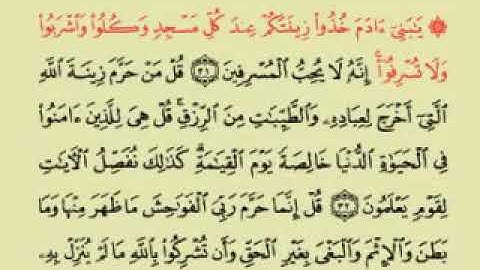 ۞ يَٰبَنِىٓ ءَادَمَ خُذُوا۟ زِينَتَكُمْ عِندَ كُلِّ مَسْجِدٍ وَكُلُوا۟ وَٱشْرَبُوا۟
وَلَا تُسْرِفُوٓا۟ ۚ إِنَّهُۥ لَا يُحِبُّ ٱلْمُسْرِفِينَ ٣١ قُلْ مَنْ حَرَّمَ زِينَةَ ٱللَّهِ
ٱلَّتِىٓ أَخْرَجَ لِعِبَادِهِۦ وَٱلطَّيِّبَٰتِ مِنَ ٱلرِّزْقِ ۚ قُلْ هِىَ لِلَّذِينَ ءَامَنُوا۟
فِى ٱلْحَيَوٰةِ ٱلدُّنْيَا خَالِصَةً يَوْمَ ٱلْقِيَٰمَةِ ۗ كَذَٰلِكَ نُفَصِّلُ ٱلْءَايَٰتِ
لِقَوْمٍ يَعْلَمُونَ ٣٢ قُلْ إِنَّمَا حَرَّمَ رَبِّىَ ٱلْفَوَٰحِشَ مَا ظَهَرَ مِنْهَا وَمَا
بَطَنَ وَٱلْإِثْمَ وَٱلْبَغْىَ بِغَيْرِ ٱلْحَقِّ وَأَن تُشْرِكُوا۟ بِٱللَّهِ مَا لَمْ يُنَزِّلْ بِهِۦ